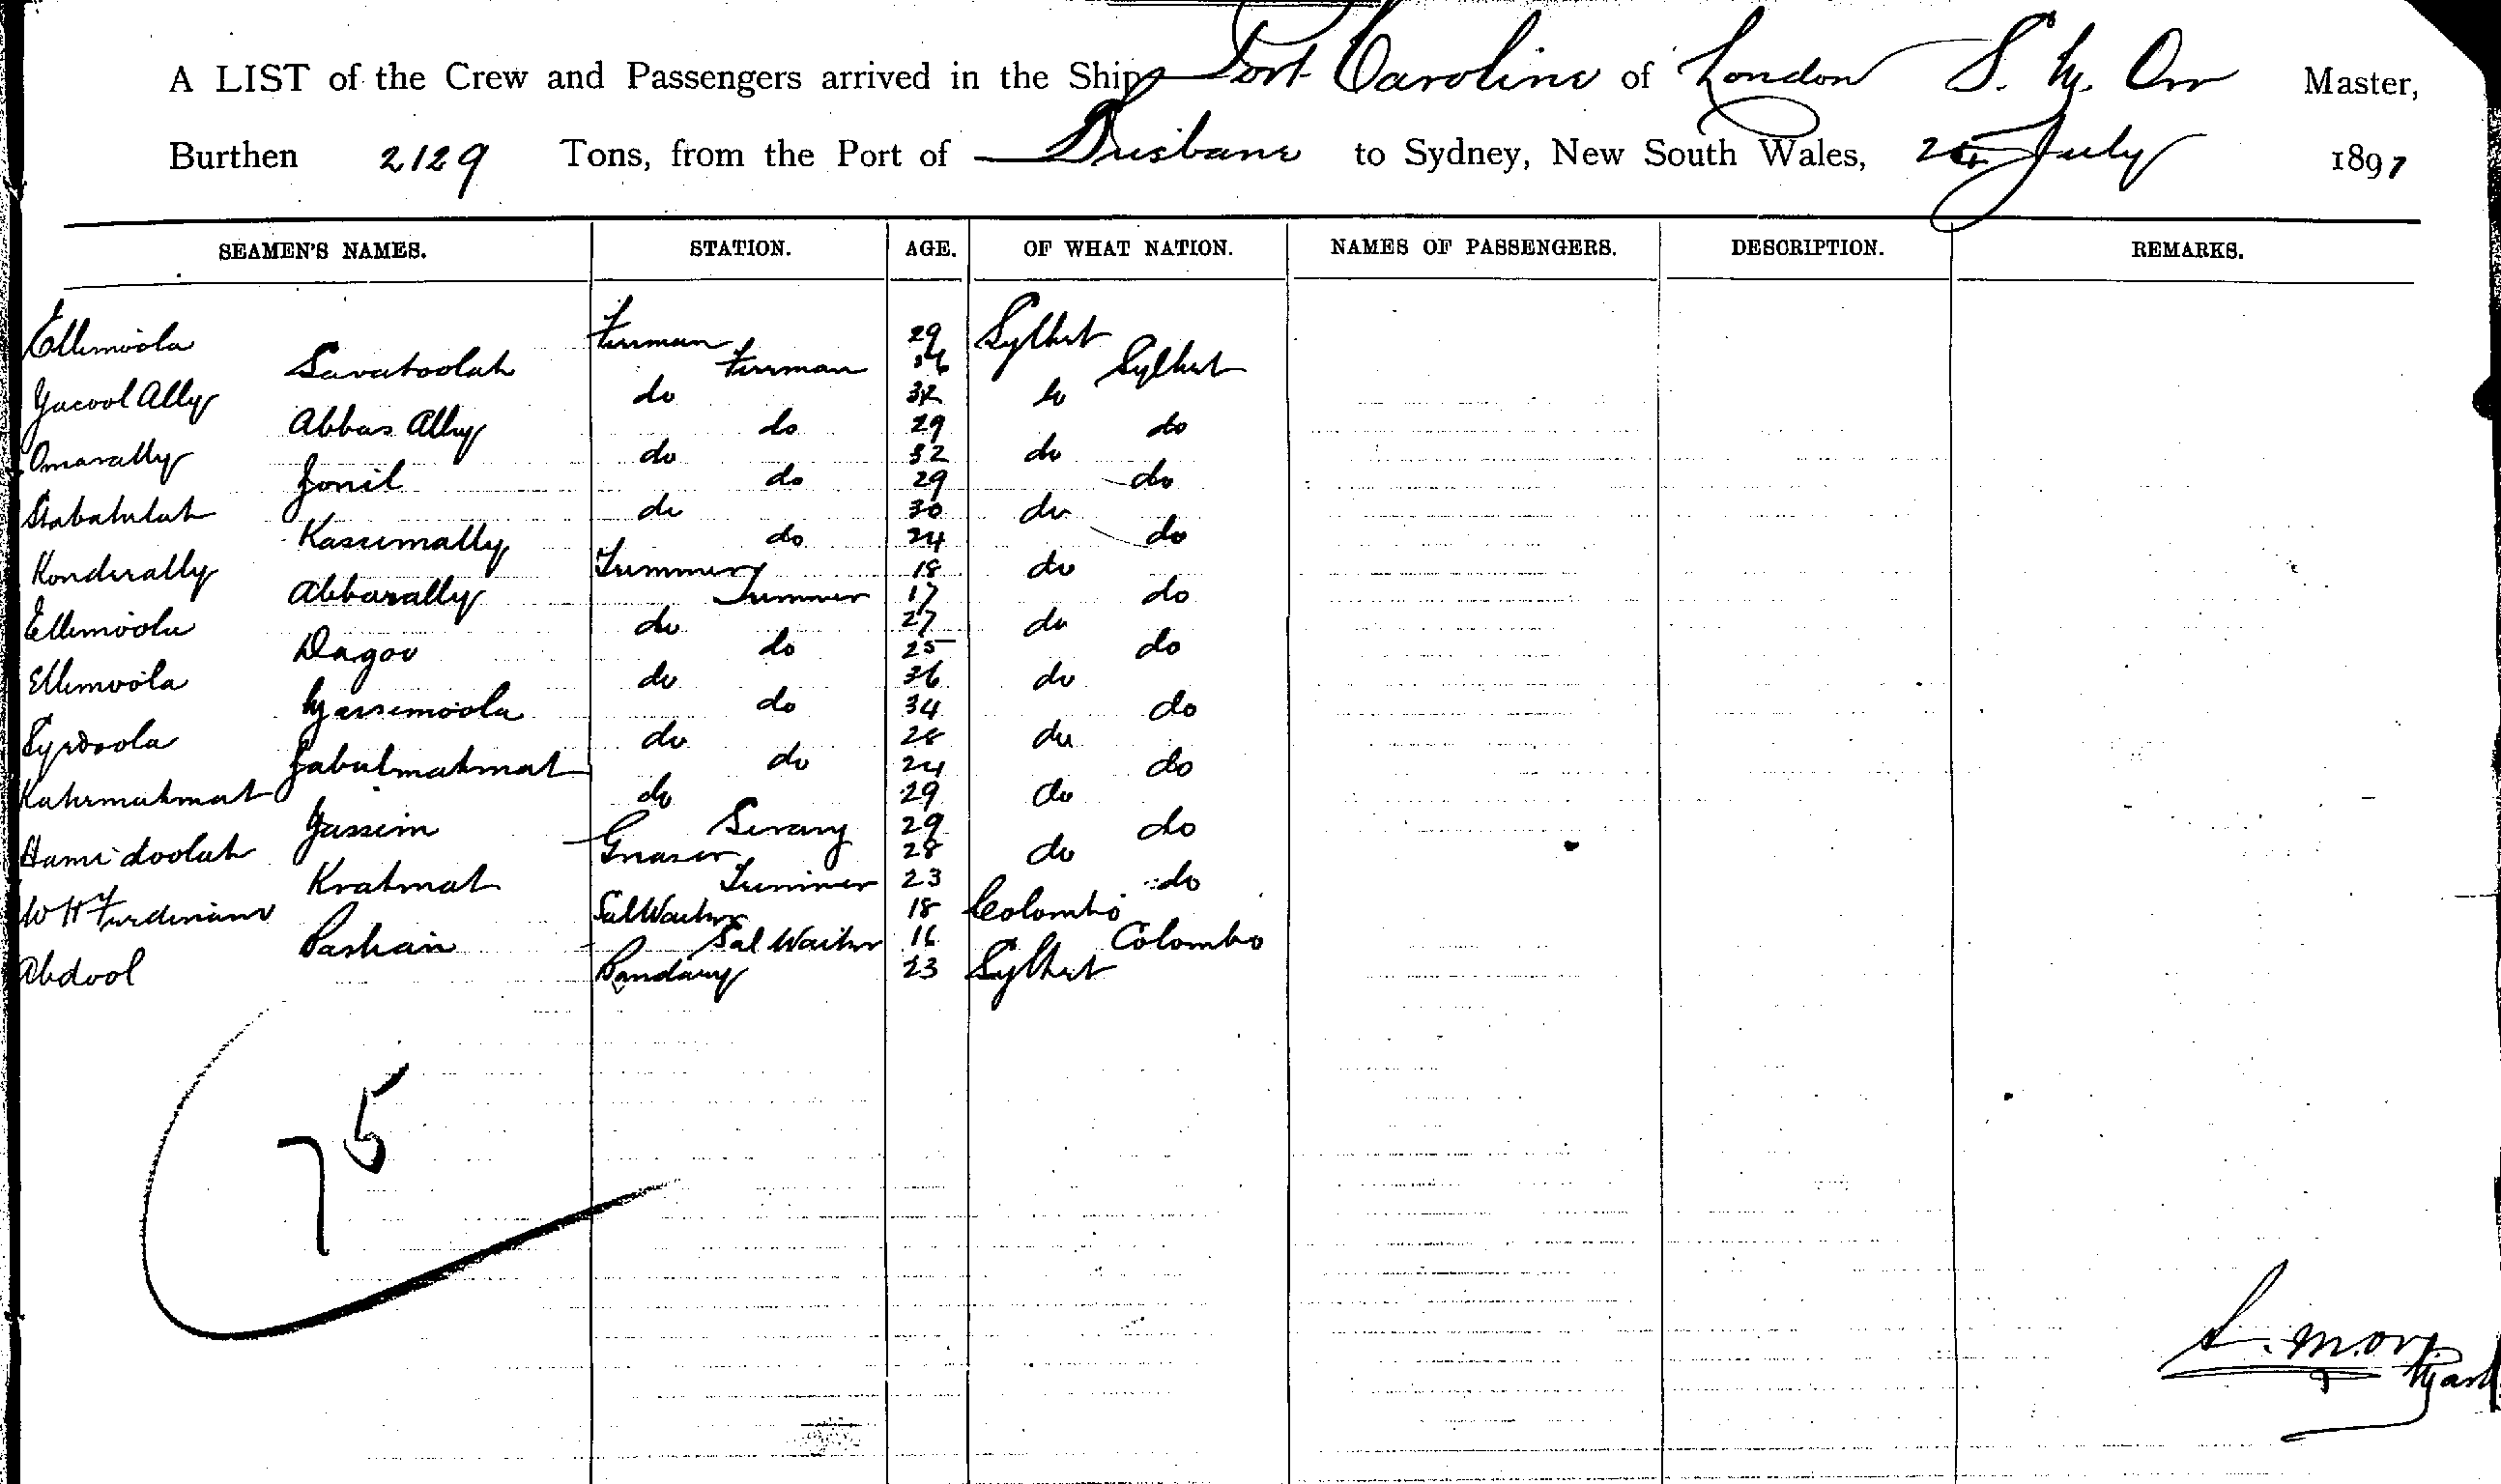 A LIST of the Crew and Passengers arrived in the Ship Port Caroline of London S. M. Orr Master,
Burthen 2129 Tons, from the Port of Brisbane to Sydney, New South Wales, 24 July 1897
SEAMEN'S NAMES. STATION. AGE. OF WHAT NATION. NAMES OF PASSENGERS. DESCRIPTION. REMARKS.
Ellimoola Firman 29 Sylhet
Savatoolah Firman 36 Sylhet
Yacool Ally do 32 do
Abbas Ally do 29 do
Omarally do 32 do
Jonil do 29 do
do 30 do
Kassimally do 24 do
Konderally Trimmer 18 do
Abbasally Trimmer 17 do
Ellimoola do 27 do
Dagoo do 25 do
Ellimoola do 36 do
do 34 do
Sydoola do 28 do
Jabulmahmat do 24 do
Kahirmahmat do 29 do
Jassim Serang 29 do
Hamidoolah Greaser 28 do
Kratmat Trimmer 23 do
W H Ferdinand Sal Waiter 18 Colombo
Sal Waiter 16 Colombo
Abdool Bandary 23 Sylhet
75
S. M. Orr